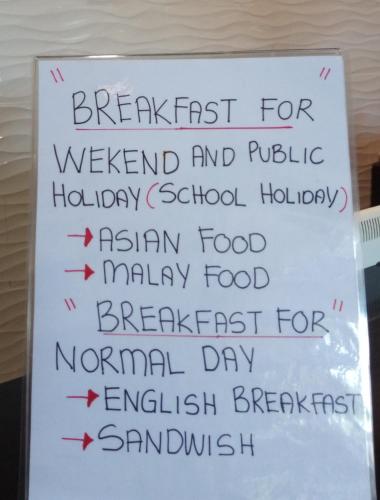 "                "
BREAKFAST FOR
WEKEND AND PUBLIC
HOLIDAY (SCHOOL HOLIDAY)
→ ASIAN FOOD
→ MALAY FOOD
" BREAKFAST FOR "
NORMAL DAY
→ ENGLISH BREAKFAST
→ SANDWISH